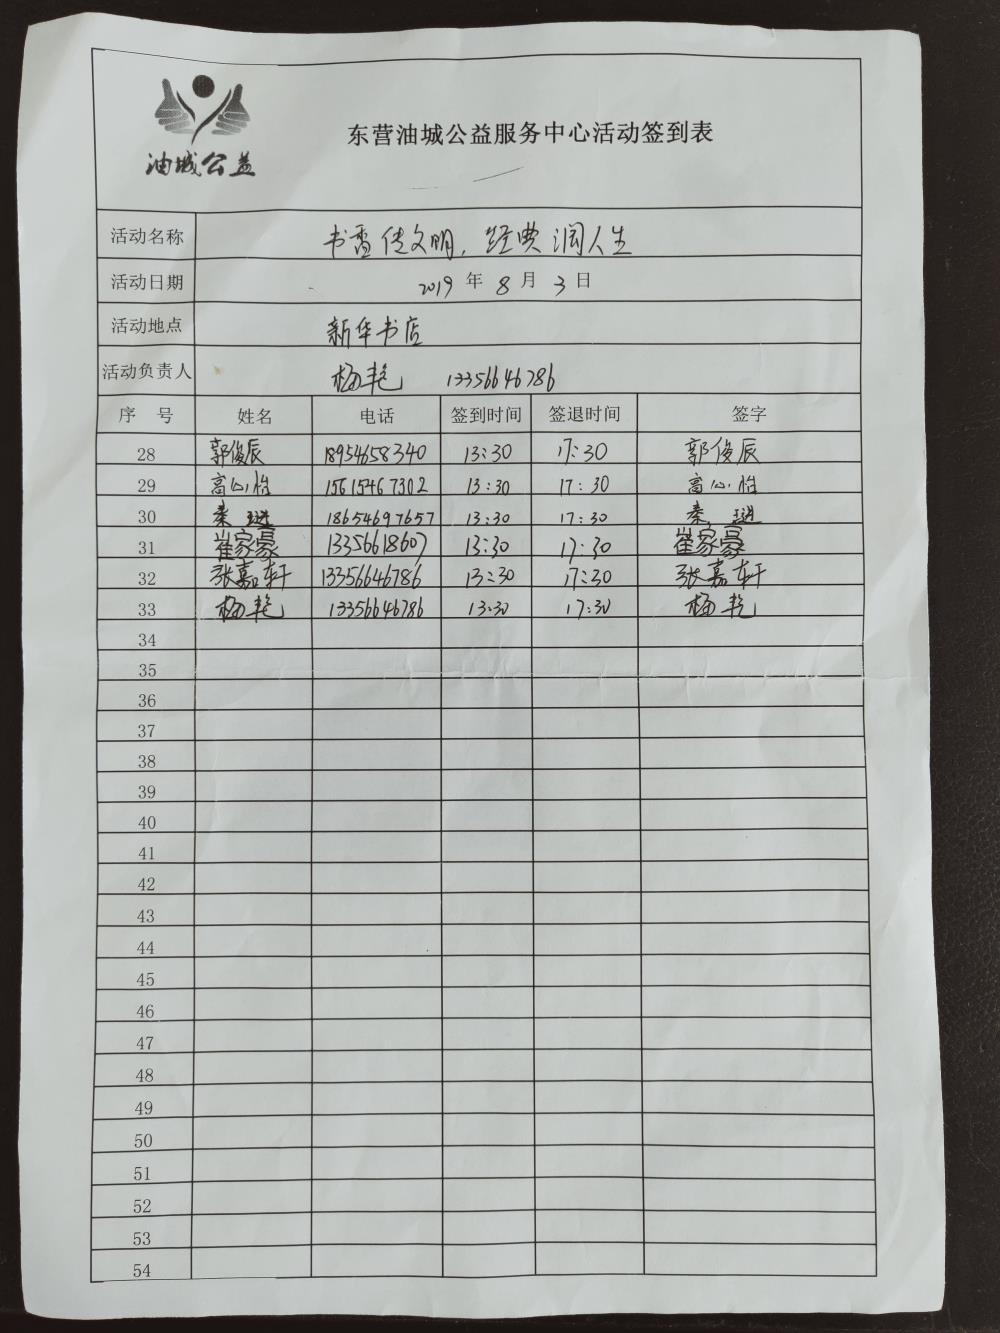 油城公益
东营油城公益服务中心活动签到表
活动名称 书香传文明，经典润人生
活动日期 2019 年 8 月 3 日
活动地点 新华书店
活动负责人 杨艳 13356646786
序 号 姓名 电话 签到时间 签退时间 签字
28 郭俊辰 18954658340 13:30 17:30 郭俊辰
29 高心怡 15615467302 13:30 17:30 高心怡
30 秦 18654697657 13:30 17:30 秦
31 崔家豪 13356618607 13:30 17:30 崔家豪
32 张嘉轩 13356646786 13:30 17:30 张嘉轩
33 杨艳 13356646786 13:30 17:30 杨艳
34
35
36
37
38
39
40
41
42
43
44
45
46
47
48
49
50
51
52
53
54